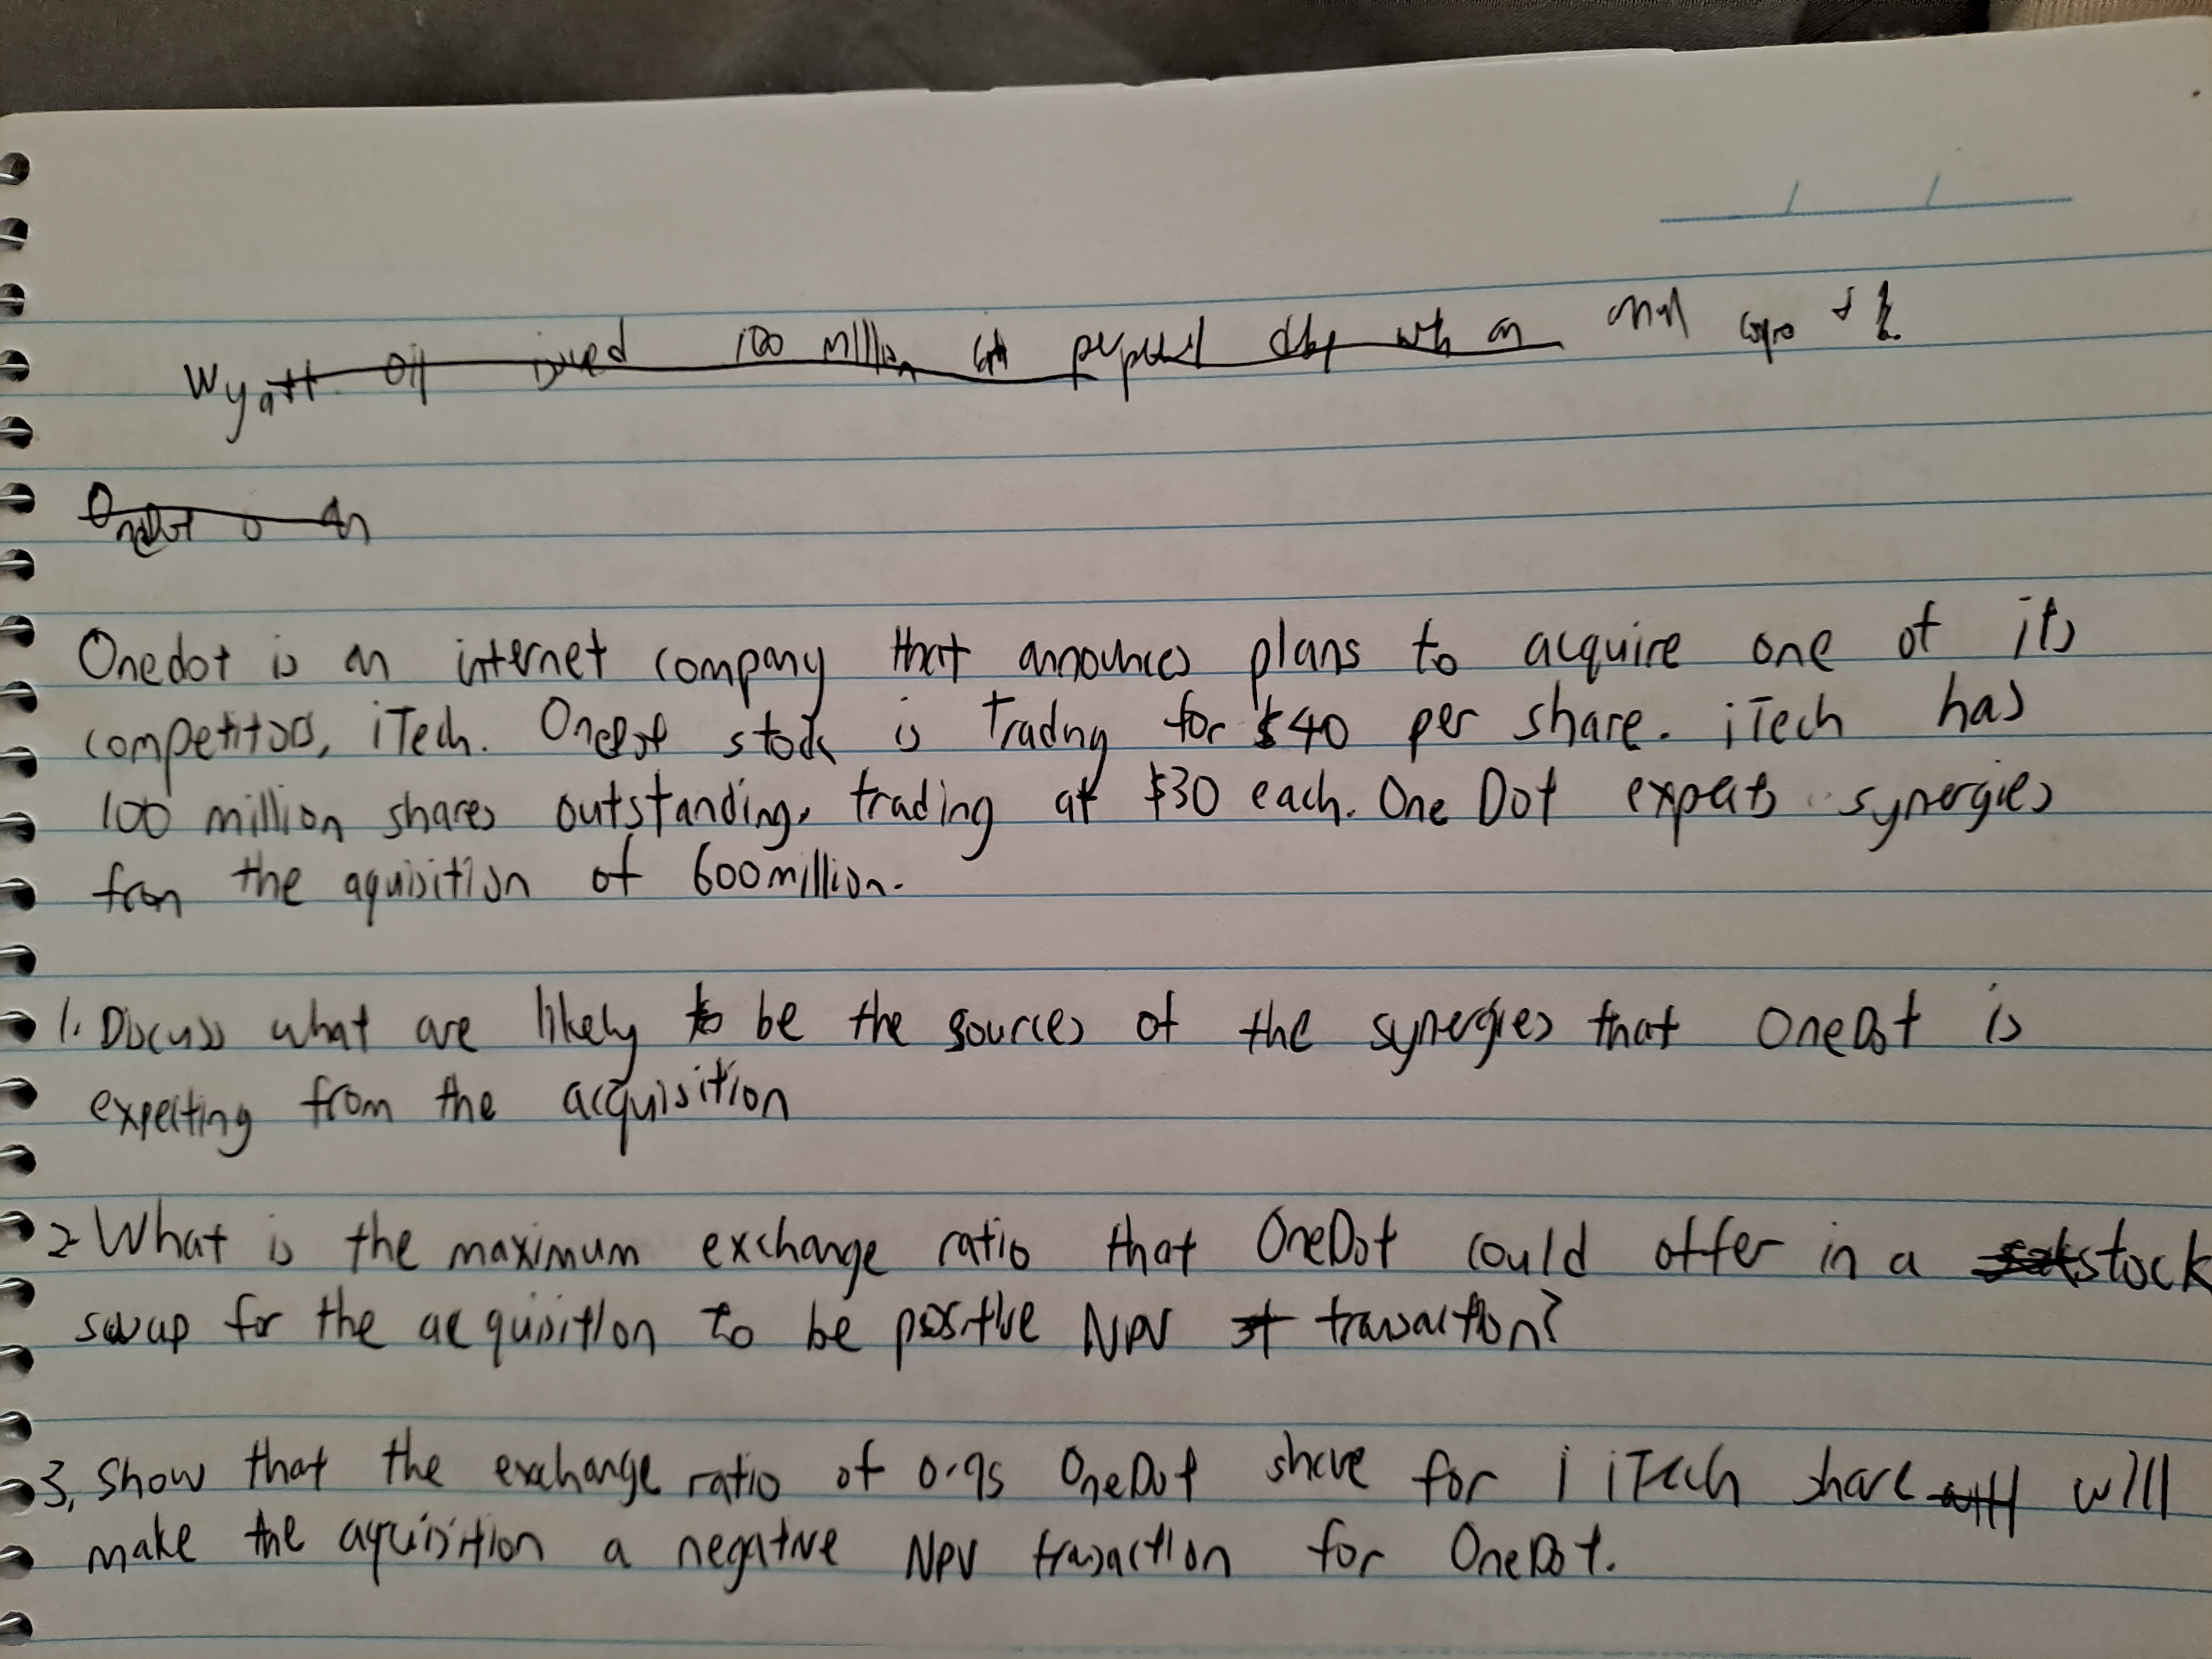 Wyatt Oil issued 100 million at perpetual debt with an
Onedot is an
Onedot is an internet company that announces plans to acquire one of its
competitors, iTech. Onedot stock is trading for $40 per share. iTech has
100 million shares outstanding, trading at $30 each. OneDot expects synergies
from the aquisition of 600million.
1. Discuss what are likely to be the sources of the synergies that Onedot is
expecting from the acquisition
2 What is the maximum exchange ratio that OneDot could offer in a stock
swap for the acquisition to be positive NPV transaction?
3, Show that the exchange ratio of 0.95 OneDot share for 1 iTech share will
make the aquisition a negative NPV transaction for OneDot.